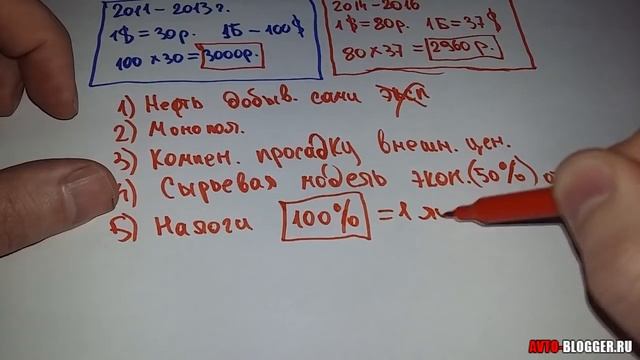 2011 - 2013 г.
1$ = 30р. 1Б - 100$
100 × 30 = 3000р.
2014 - 2016
1$ = 80р. 1Б = 37$
80 × 37 = 2960 р.
1) Нефть добыв. сами
2) Монопол.
3) Компен. просадку внешн. цен.
4) Сырьевая модель экон. (50%)
5) Налоги 100% = 1
AVTO-BLOGGER.RU